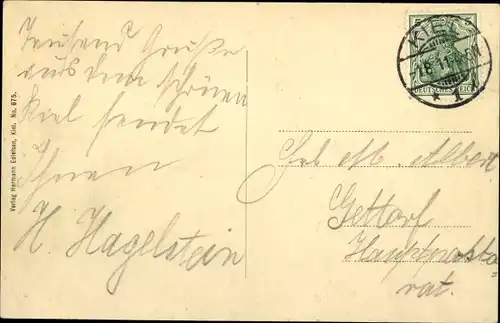 Tausend Grüße
aus dem schönen
Kiel sendet
Ihnen
H. Hagelstein
Verlag Hermann Edlefsen, Kiel. No. 675.
KIEL
DEUTSCHES REICH
1
Frl. M. Albert
Gettorf
Hauptpasto-
rat.